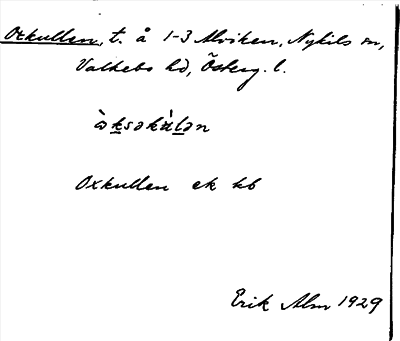 Oxkullen, t. å 1-3 Alviken, Nykils sn,
Valkebo hd, Österg. l.
òksəkùlən
Oxkullen ek kb
Erik Alm 1929